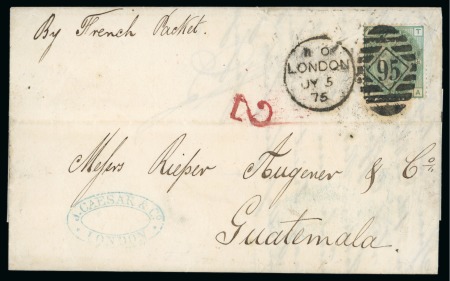 By French Packet.
LONDON
JY 5
75
95
T
A
2
Messrs Rieper Augener & Co.
J. CAESAR & Co
LONDON
Guatemala.